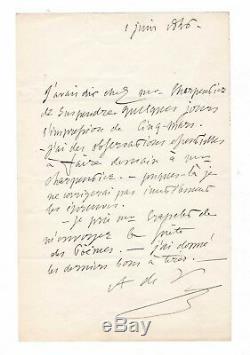 1 juin 1846 -
J'avais dit chez mr Charpentier
de suspendre quelques jours
l'impression de Cinq-Mars.
- J'ai des observations essentielles
à faire demain à mr
Charpentier. - jusques-là je
ne corrigerai pas inutilement
les épreuves.
- je prie mr Crapelet de
m'envoyer la suite
des Poèmes. - j'ai donné
les derniers bons à tirer. -
A de V